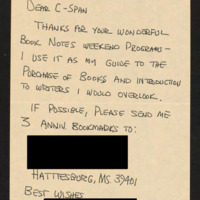 DEAR C-SPAN
THANKS FOR YOUR WONDERFUL
BOOK NOTES WEEKEND PROGRAMS-
I USE IT AS MY GUIDE TO THE
PURCHASE OF BOOKS AND INTRODUCTION
TO WRITERS I WOULD OVERLOOK.
IF POSSIBLE, PLEASE SEND ME
3 ANNIV. BOOKMARKS TO:
HATTIESBURG, MS. 39401
BEST WISHES